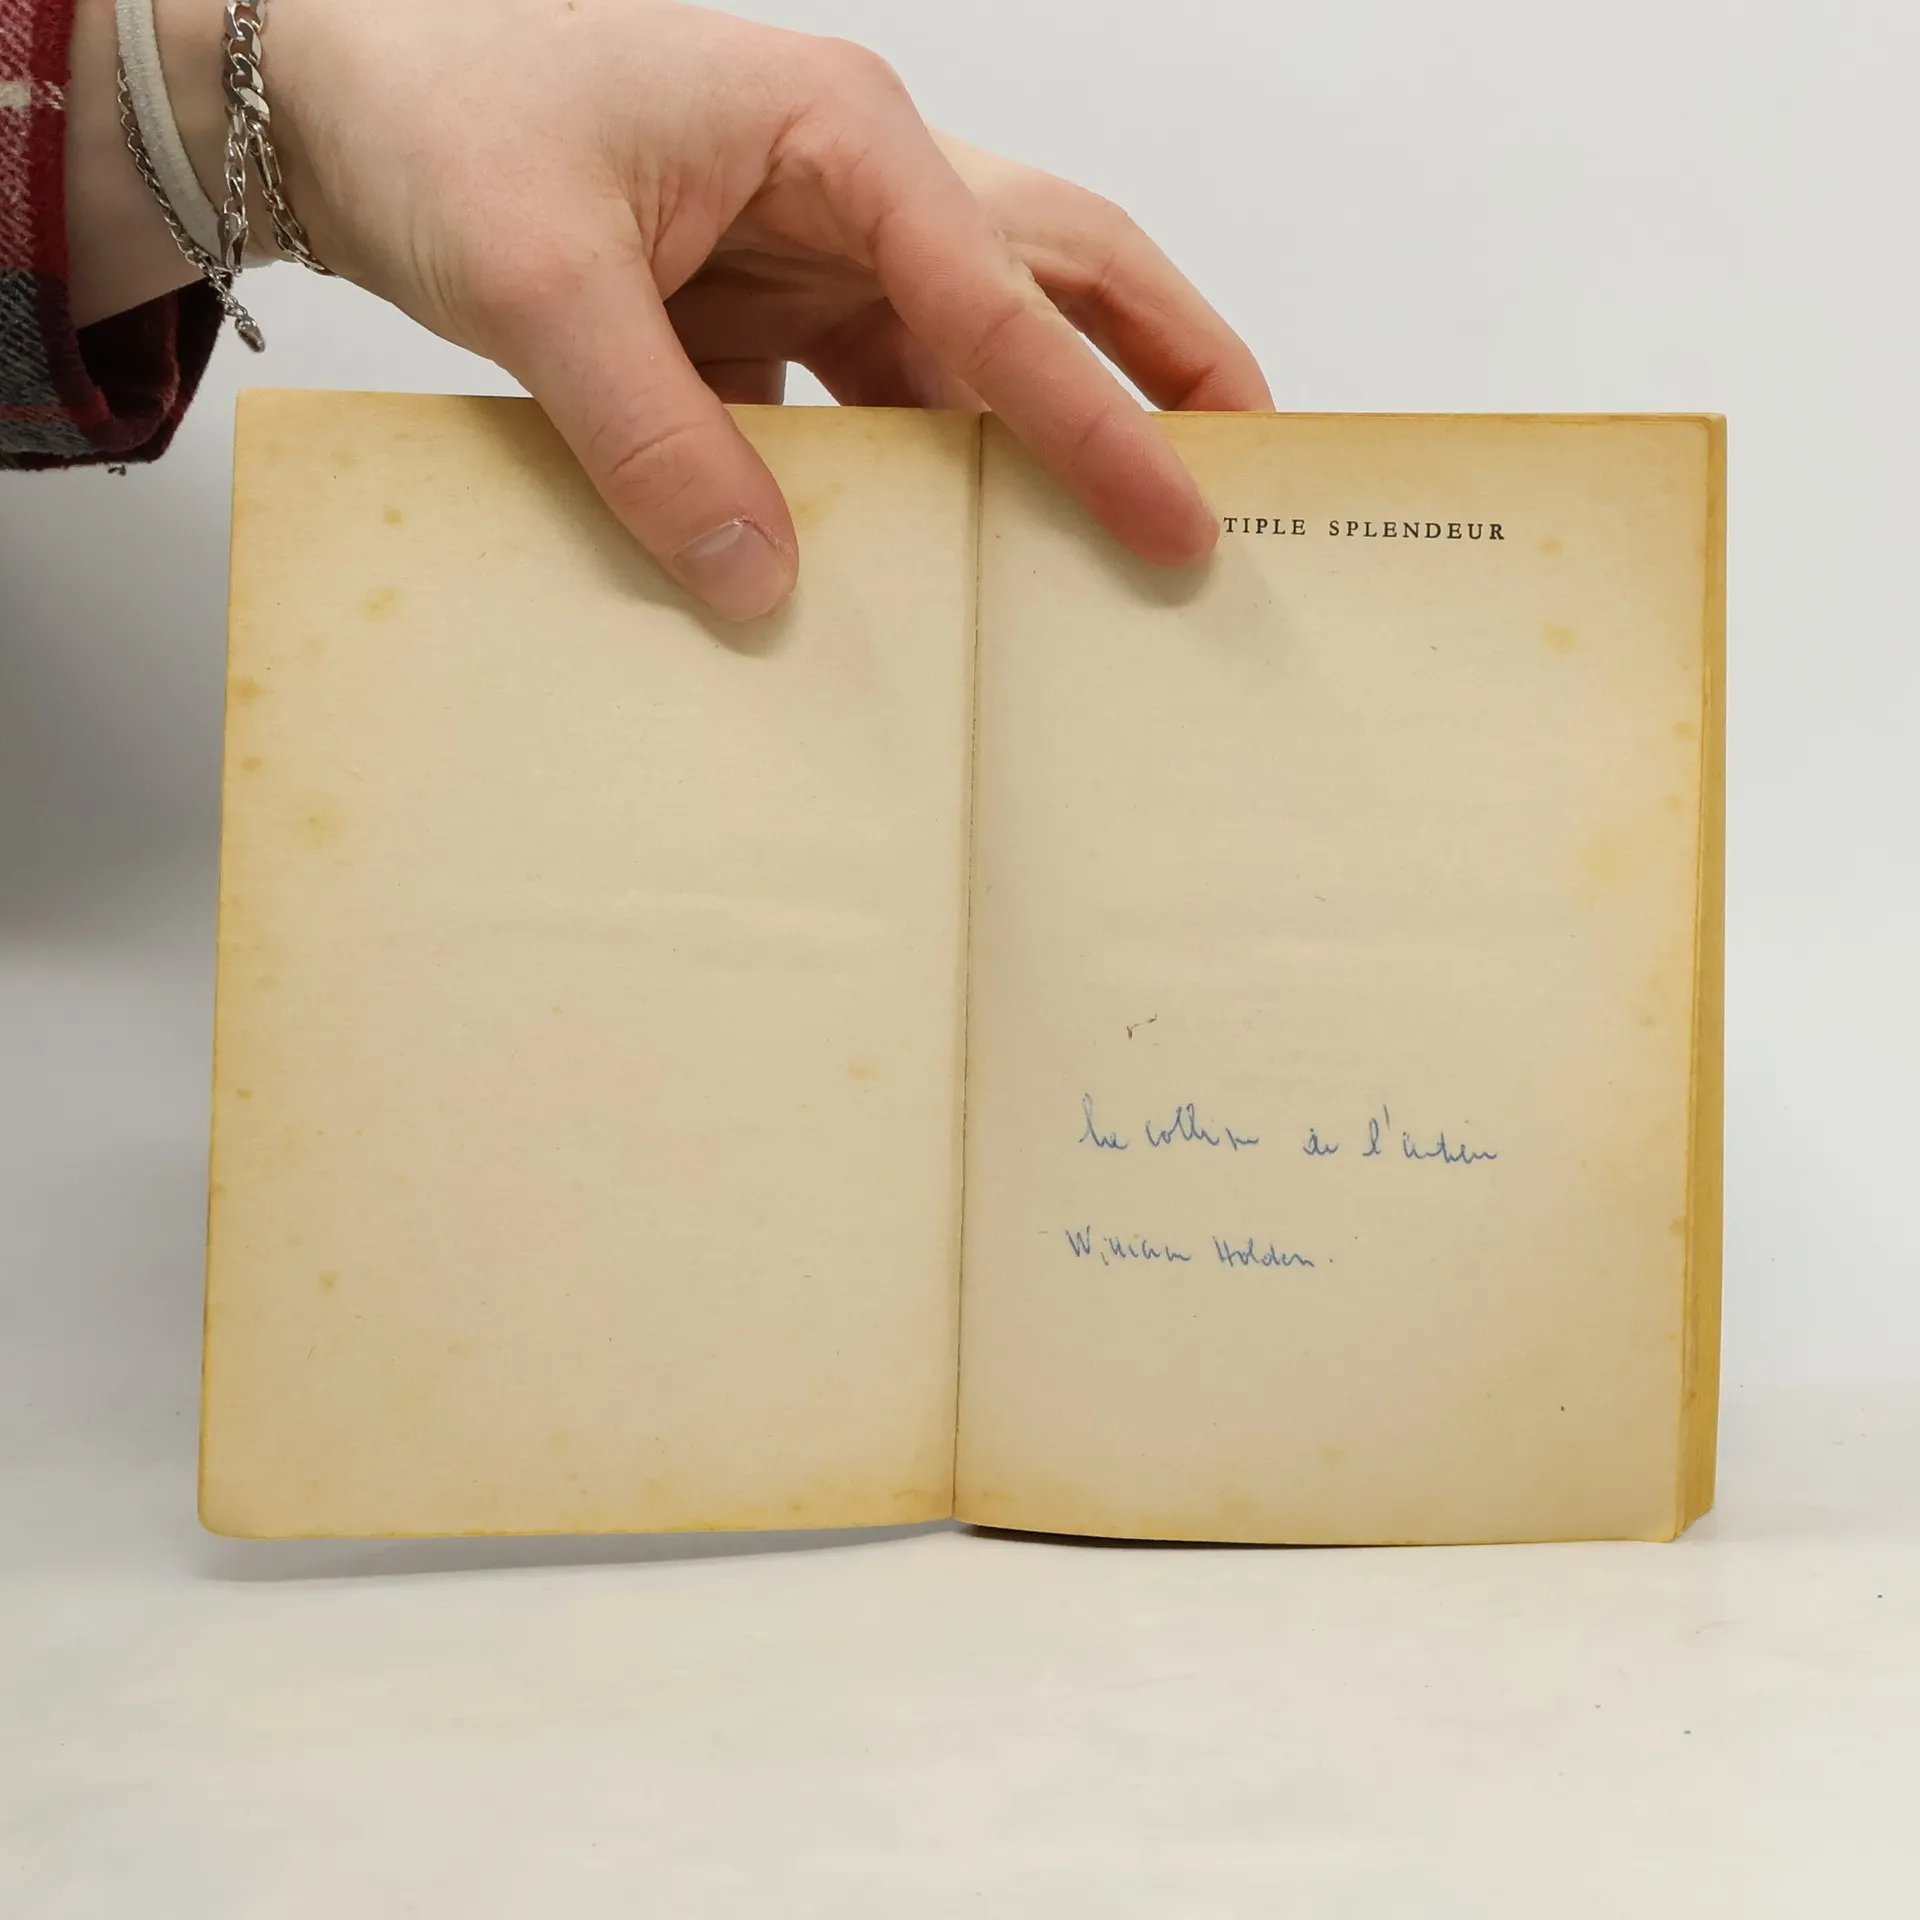 TIPLE SPLENDEUR
La colline de l'adieu
William Holden.